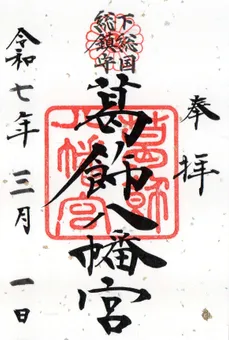 奉拝
下総国
総鎮守
葛飾八幡宮
葛飾
八幡宮
令和七年三月一日